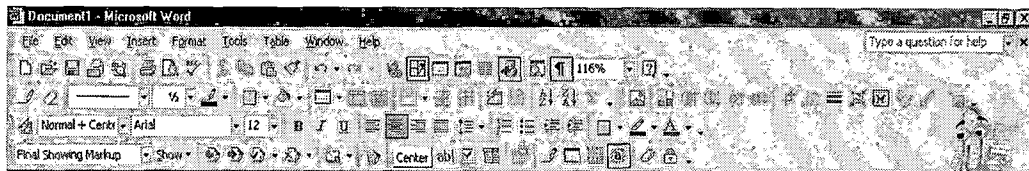 Document1 - Microsoft Word
File Edit View Insert Format Tools Table Window Help Type a question for help
¶ 116%
½
Normal + Cente Arial 12 B I U
Final Showing Markup Show Center ab|